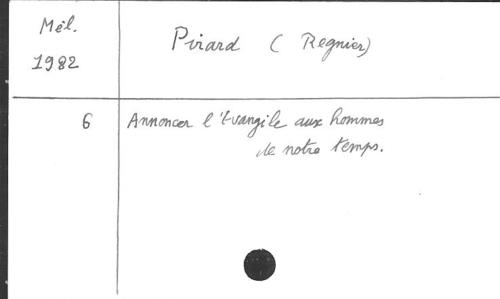 Mél.
1982
Pirard (Regnier)
6
Annoncer l'Evangile aux hommes
de notre temps.